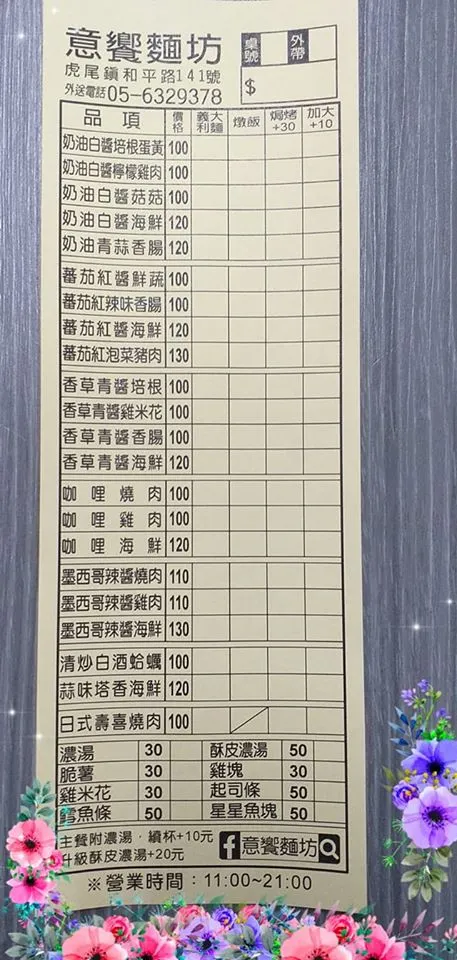 意饗麵坊
桌號 外帶
虎尾鎮和平路141號
外送電話05-6329378
$
品項 價格 義大利麵 燉飯 焗烤+30 加大+10
奶油白醬培根蛋黃 100
奶油白醬檸檬雞肉 100
奶油白醬菇菇 100
奶油白醬海鮮 120
奶油青蒜香腸 120
蕃茄紅醬鮮蔬 100
蕃茄紅辣味香腸 100
蕃茄紅醬海鮮 120
蕃茄紅泡菜豬肉 130
香草青醬培根 100
香草青醬雞米花 100
香草青醬香腸 100
香草青醬海鮮 120
咖哩燒肉 100
咖哩雞肉 100
咖哩海鮮 120
墨西哥辣醬燒肉 110
墨西哥辣醬雞肉 110
墨西哥辣醬海鮮 130
清炒白酒蛤蠣 100
蒜味塔香海鮮 120
日式壽喜燒肉 100
濃湯 30 酥皮濃湯 50
脆薯 30 雞塊 30
雞米花 30 起司條 50
鱈魚條 50 星星魚塊 50
主餐附濃湯，續杯+10元
升級酥皮濃湯+20元
f 意饗麵坊
※營業時間：11:00~21:00